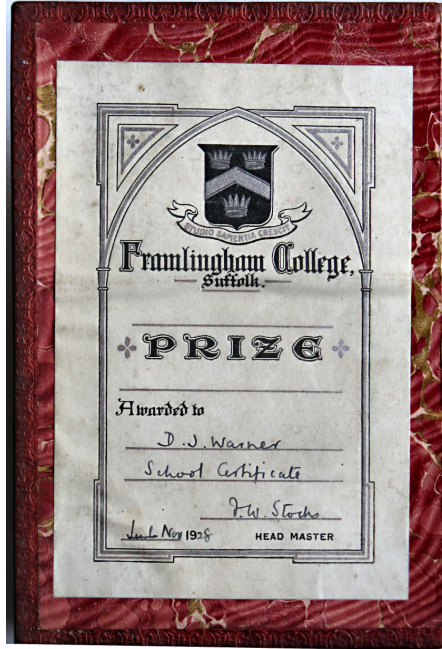 STUDIO SAPIENTIA CRESCIT
Framlingham College,
Suffolk.
PRIZE
Awarded to
D. J. Warner
School Certificate
F. W. Stocks
Nov 1928
HEAD MASTER